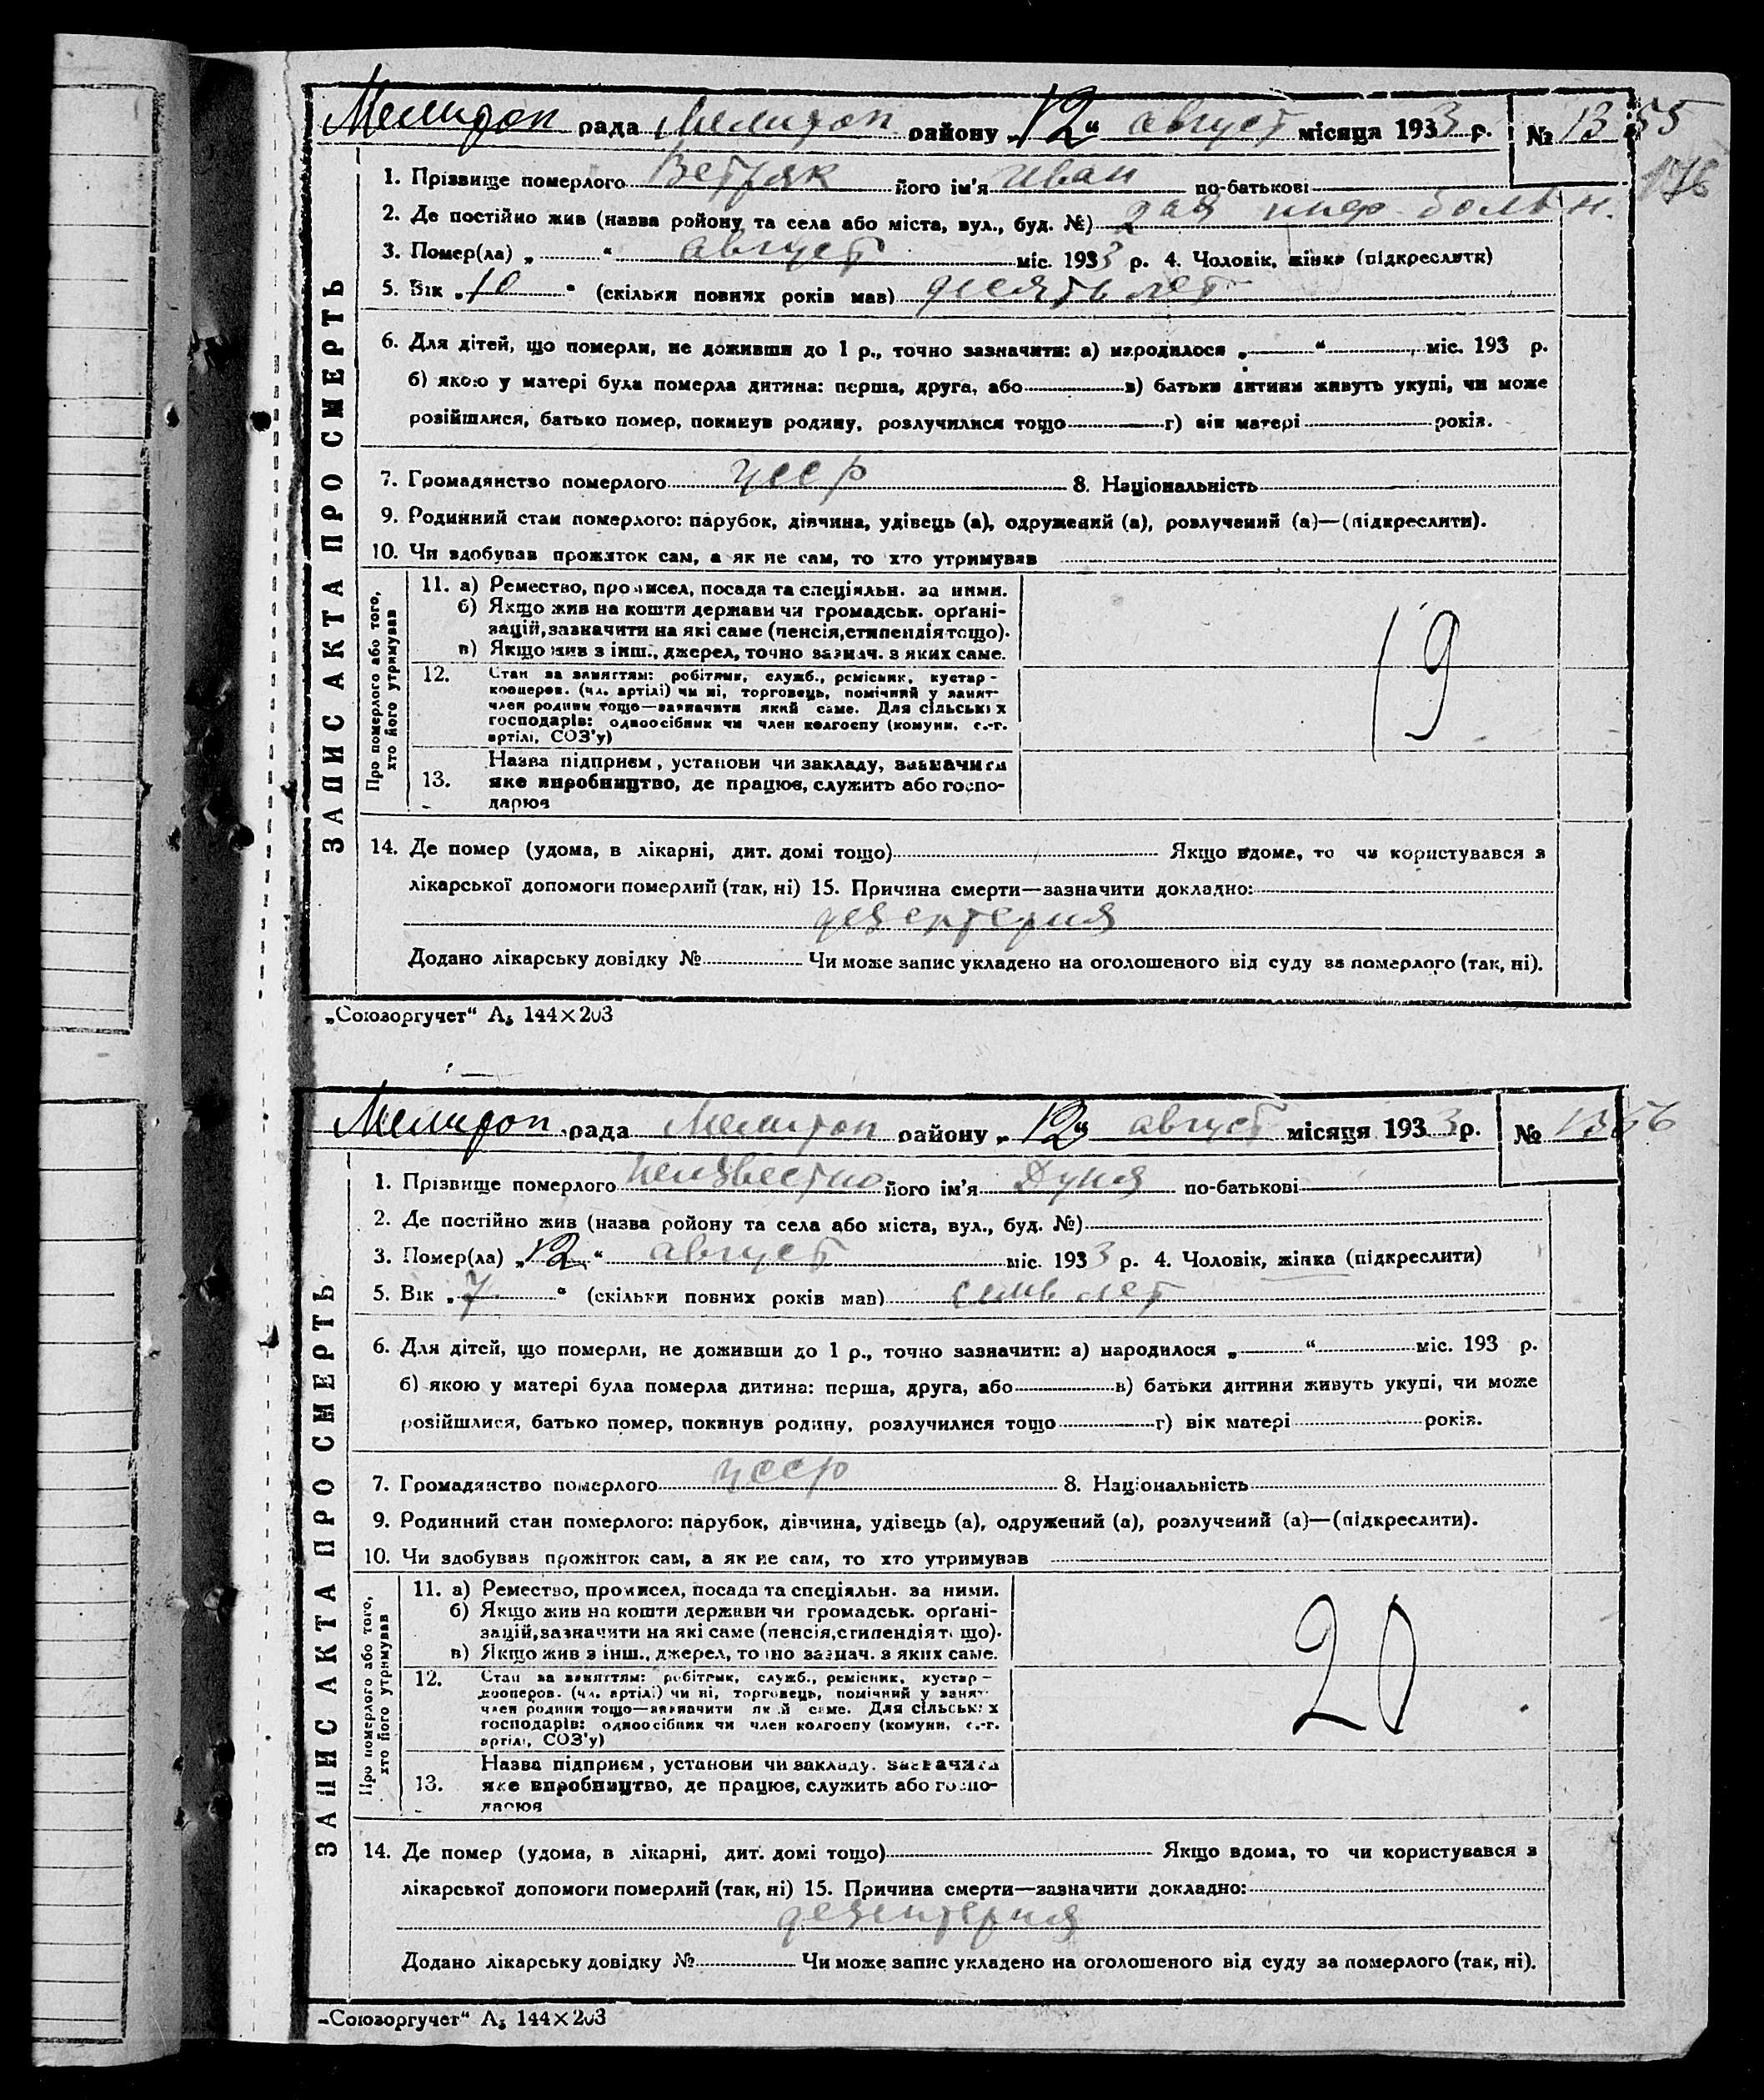 Мелитоп рада Мелитоп району „12" август місяця 1933 р. № 1355
176
ЗАПИС АКТА ПРО СМЕРТЬ
1. Прізвище померлого Ветряк його ім'я Иван по-батькові
2. Де постійно жив (назва ройону та села або міста, вул., буд. №) инф больн.
3. Помер(ла) „ " август міс. 1933 р. 4. Чоловік, жінка (підкреслити)
5. Вік „10" (скільки повних років мав) десять лет
6. Для дітей, що померли, не доживши до 1 р., точно зазначити: а) народилося „ " міс. 193 р.
б) якою у матері була померла дитина: перша, друга, або в) батьки дитини живуть укупі, чи може
розійшлися, батько помер, покинув родину, розлучилися тощо г) вік матері років.
7. Громадянство померлого усср 8. Національність
9. Родинний стан померлого: парубок, дівчина, удівець (а), одружений (а), розлучений (а)—(підкреслити).
10. Чи здобував прожиток сам, а як не сам, то хто утримував
Про померлого або того, хто його утримував
11. а) Ремество, промисел, посада та спеціяльн. за ними.
б) Якщо жив на кошти держави чи громадськ. орґані-
зацій, зазначити на які саме (пенсія, стипендія тощо).
в) Якщо жив з інш., джерел, точно зазнач. з яких саме.
19
12. Стан за заняттям: робітник, служб., ремісник, кустар-
кооперов. (чл. артілі) чи ні, торговець, помічний у занят-
член родини тощо—зазначити який саме. Для сільських
господарів: одноосібник чи член колгоспу (комуни, с.-г.
артілі, СОЗ'у)
13. Назва підприєм, установи чи закладу, зазначити
яке виробництво, де працює, служить або госпо-
дарює
14. Де помер (удома, в лікарні, дит. домі тощо) Якщо вдома, то чи користувався з
лікарської допомоги померлий (так, ні) 15. Причина смерти—зазначити докладно:
дезентерия
Додано лікарську довідку № Чи може запис укладено на оголошеного від суду за померлого (так, ні).
„Союзоргучет" А₅ 144×203
Мелитоп рада Мелитоп району „12" август місяця 1933 р. № 1356
ЗАПИС АКТА ПРО СМЕРТЬ
1. Прізвище померлого неизвестно його ім'я Дуня по-батькові
2. Де постійно жив (назва ройону та села або міста, вул., буд. №)
3. Помер(ла) „12" август міс. 1933 р. 4. Чоловік, жінка (підкреслити)
5. Вік „7" (скільки повних років мав) семь лет
6. Для дітей, що померли, не доживши до 1 р., точно зазначити: а) народилося „ " міс. 193 р.
б) якою у матері була померла дитина: перша, друга, або в) батьки дитини живуть укупі, чи може
розійшлися, батько помер, покинув родину, розлучилися тощо г) вік матері років.
7. Громадянство померлого усср 8. Національність
9. Родинний стан померлого: парубок, дівчина, удівець (а), одружений (а), розлучений (а)—(підкреслити).
10. Чи здобував прожиток сам, а як не сам, то хто утримував
Про померлого або того, хто його утримував
11. а) Ремество, промисел, посада та спеціяльн. за ними.
б) Якщо жив на кошти держави чи громадськ. орґані-
зацій, зазначити на які саме (пенсія, стипендія тощо).
в) Якщо жив з інш., джерел, точно зазнач. з яких саме.
20
12. Стан за заняттям: робітник, служб., ремісник, кустар-
кооперов. (чл. артілі) чи ні, торговець, помічний у занят-
член родини тощо—зазначити який саме. Для сільських
господарів: одноосібник чи член колгоспу (комуни, с.-г.
артілі, СОЗ'у)
13. Назва підприєм, установи чи закладу, зазначити
яке виробництво, де працює, служить або госпо-
дарює
14. Де помер (удома, в лікарні, дит. домі тощо) Якщо вдома, то чи користувався з
лікарської допомоги померлий (так, ні) 15. Причина смерти—зазначити докладно:
дезентерия
Додано лікарську довідку № Чи може запис укладено на оголошеного від суду за померлого (так, ні).
„Союзоргучет" А₅ 144×203